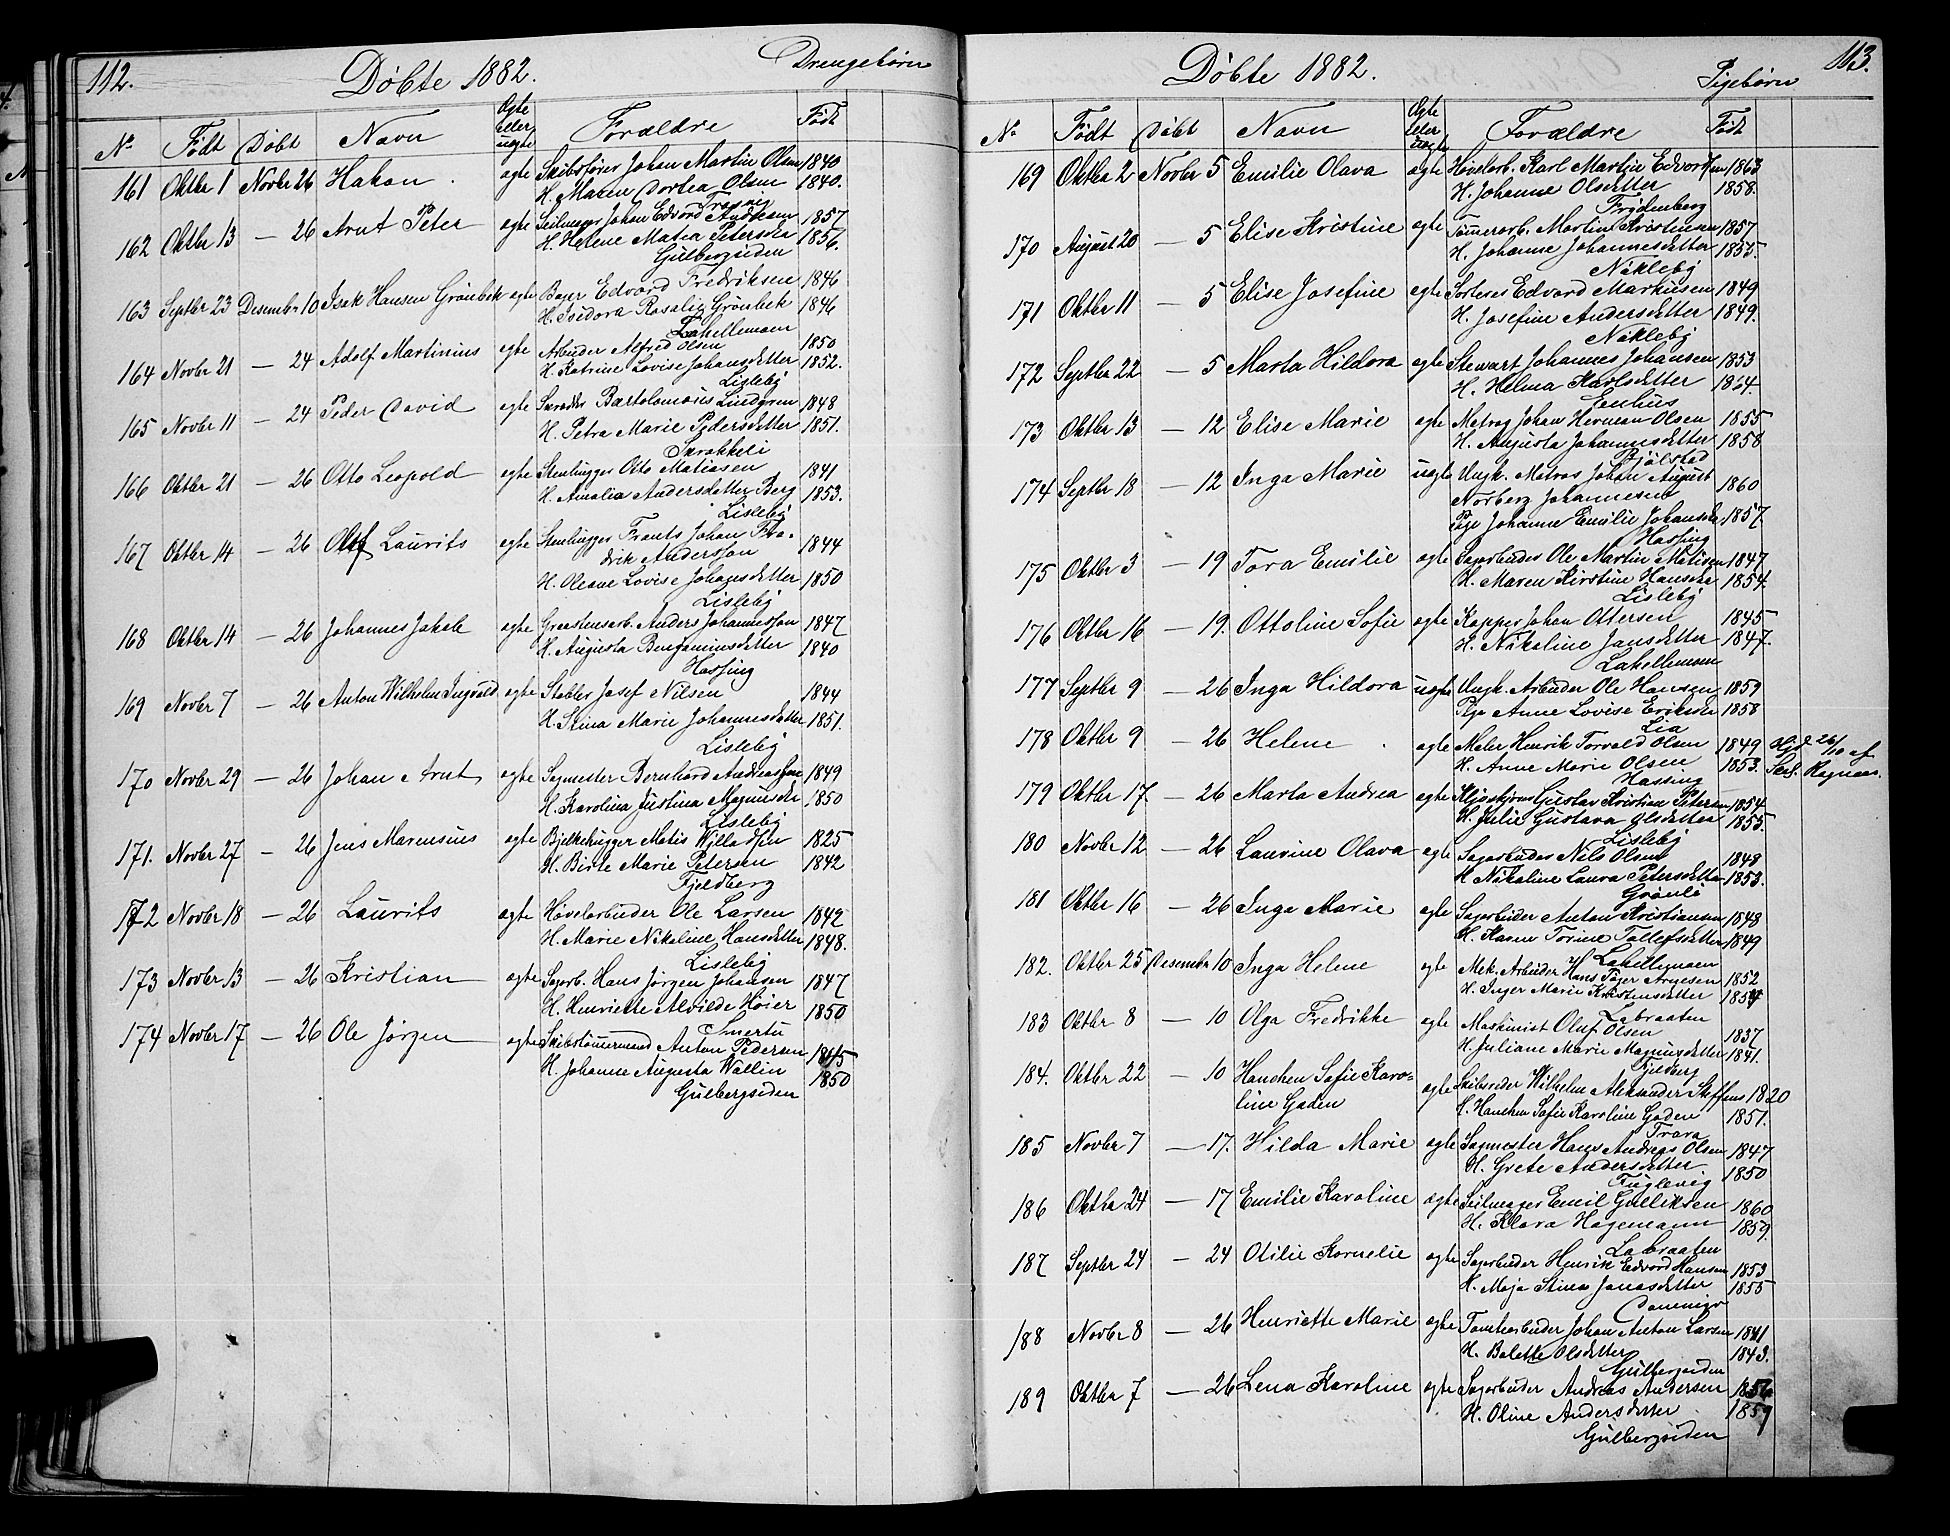 112.
Döbte 1882.
Drengebörn
No Födt Döbt Navn Ægte eller uægte Forældre Födt
161 Oktbr 1 Novbr 26 Hakon ægte Skibsförer Johan Martin Olsen 1840
H. Maren Dortea Olsen 1840.
Trosvig
162 Oktbr 13 — 26 Arnt Peter ægte Seilmager Johan Edvard Andresen 1857
H. Helene Matea Petersen 1856.
Gülbergsiden
163 Septbr 23 Desember 10 Isak Hansen Grönbek ægte Bager Edvard Fredriksen 1846
H. Isidora Rosalie Grönbek 1846
Lahellemoen
164 Novbr 21 — 24 Adolf Martinius ægte Arbeider Alfred Olsen 1850
H. Katrine Lovise Johansdetter 1852.
Lisleby
165 Novbr 11 — 24 Peder David ægte Bartolomæus Lindgren 1848
H. Petra Marie Pedersdetter 1851.
166 Oktbr 21 — 26 Otto Leopold ægte Stenhugger Otto Matiasen 1841
H. Amalia Andersdetter Berg 1853.
Lisleby
167 Oktbr 14 — 26 Olaf Laurits ægte Stenhugger Frants Johan Fre-
drik Andersson 1844
H. Oleane Lovise Johansdetter 1850
Lisleby
168 Oktbr 14 — 26 Johannes Jakob ægte Anders Johannesson 1847
H. Augusta Benjaminsdetter 1840
Hassing
169 Novbr 7 — 26 Anton Wilhelm Ingvald ægte Stabler Josef Nilsen 1844
H. Stina Marie Johannesdetter 1851.
Lisleby
170 Novbr 29 — 26 Johan Arnt ægte Sagmester Bernhard Andreassen 1849
H. Karolina Justina Magnusdtr 1850
Lisleby
171. Novbr 27 — 26 Jens Marensius ægte Bjelkehugger Matis Willadsen 1825
H. Birte Marie Petersen 1842
Fjeldberg
172 Novbr 18 — 26 Laurits ægte Hövelarbeider Ole Larsen 1842
H. Marie Nikoline Hansdetter 1848.
Lisleby
173 Novbr 13 — 26 Kristian ægte Sagarb. Hans Jörgen Johansen 1847
H. Henriette Alvilde Höier 1850
Smertu
174 Novbr 17 — 26 Ole Jörgen ægte Skibstömmermand Anton Pedersen 1845
H. Johanne Augusta Wallin 1850
Gülbergsiden
113.
Döbte 1882.
Pigebörn
No Födt Döbt Navn Ægte eller uægte Forældre Födt
169 Oktbr 2 Novbr 5 Emilie Olava ægte Hövelarb. Karl Martin Edvardsen 1863
H. Johanne Olsdetter 1858.
Frydenberg
170 August 20 — 5 Elise Kristine ægte Tömmerarb. Martin Kristiansen 1857
H. Johanne Johannesdetter 1855.
Nökleby
171 Oktbr 11 — 5 Elise Josefine ægte Sorterer Edvard Markusen 1849
H. Josefine Andersdetter 1849.
Nökleby
172 Septbr 22 — 5 Marta Hildora ægte Stewart Johannes Johansen 1853
H. Helena Karlsdetter 1864
Enhus
173 Oktbr 13 — 12 Elise Marie ægte Matros Johan Herman Olsen 1855
H. Augusta Johannesdetter 1858
Bjölstad
174 Septbr 18 — 12 Inga Marie uægte Ungk. Matros Johan August
Norberg Johannesen 1860
Pige Johanne Emilie Johansdtr 1857.
Hassing
175 Oktbr 3 — 19 Tora Emilie ægte Sagarbeider Ole Martin Matisen 1847
H. Maren Kirstine Hansdtr 1854.
Lisleby
176 Oktbr 16 — 19. Ottoline Sofie ægte Kapper Johan Ottersen 1845
H. Nikoline Jansdetter 1847.
Lahellemoen
177 Septbr 9 — 26 Inga Hildora uægte Ungk. Arbeider Ole Hansen 1859
Pige Anne Lovise Eriksdtr 1858
Lia
178 Oktbr 9 — 26 Helene ægte Maler Henrik Torvald Olsen 1849 Hjd. 26/10 af
H. Anne Marie Olsen 1853.
Hassing
179 Oktbr 17. — 26 Marta Andrea ægte Gustav Kristian Petersen 1854.
H. Julie Gustava Olsdetter 1855.
Lisleby
180 Novbr 12 — 26 Laurine Olava ægte Sagarbeider Nils Olsen 1848
H. Nikoline Laura Petersdetter 1853.
Grönli
181 Oktbr 16 — 26 Inga Marie ægte Sagarbeider Anton Kristiansen 1848
H. Karen Torine Tollefsdetter 1849
Lahellemoen
182. Oktbr 25 Desember 10 Inga Helene ægte Mek. Arbeider Hans Töger Arnesen 1852
H. Inger Marie Kristensdetter 1854
Labraaten
183 Oktbr 8 — 10 Olga Fredrikke ægte Maskinist Oluf Olsen 1837
H. Juliane Marie Magnusdetter 1841.
Fjeldberg
184. Oktbr 22 — 10 Hanchen Sofie Karo-
line Gaden ægte Skibsreder Wilhelm Aleksander Steffens 1820
H. Hanchen Sofie Karoline Gaden 1851.
Trara
185 Novbr 7 — 17. Hilda Marie ægte Sagmester Hans Andreas Olsen 1847
H. Grete Andersdetter 1850
Fuglevig
186 Oktbr 24 — 17 Emilie Karoline ægte Seilmager Emil Gulliksen 1860
H. Klara Hagemann 1859.
Labraaten
187 Septbr 24 — 24 Otilie Kornelie ægte Sagarbeider Henrik Edvard Hansen 1853
H. Maja Stina Jonasdetter 1855
188 Novbr 8 — 26 Henriette Marie ægte Tomtearbeider Johan Anton Larsen 1841
H. Bolette Olsdetter 1843.
Gülbergsiden
189 Oktbr 7 — 26 Lena Karoline ægte Sagarbeider Andreas Andersen 1856
H. Oline Andersdetter 1859
Gülbergsiden